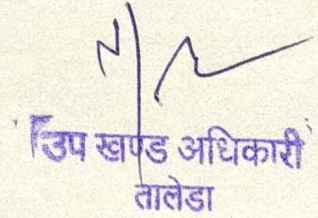 उप खण्ड अधिकारी
तालेडा